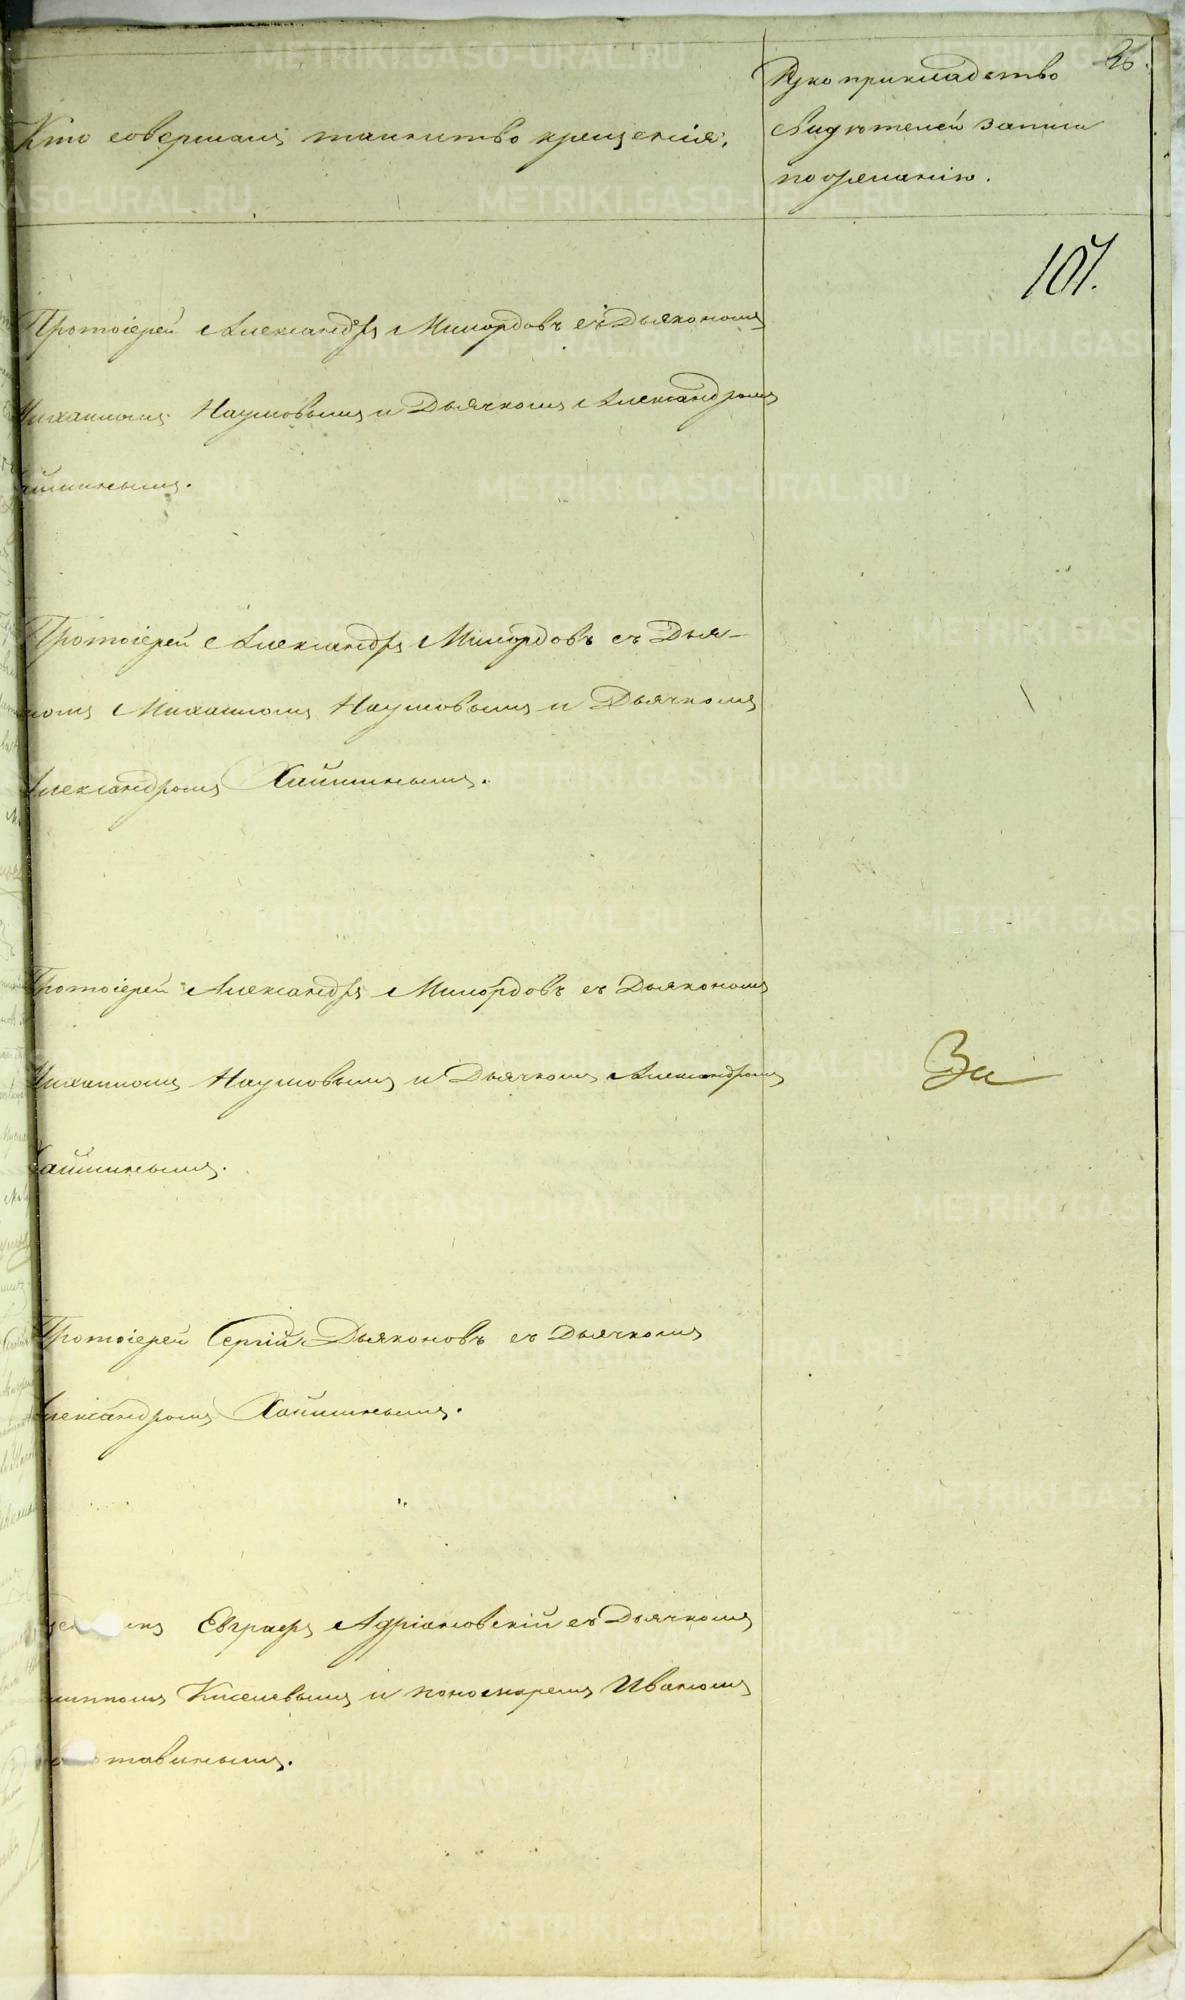 26.
Кто совершалъ таинство крещенія.
Рукоприкладство
свидѣтелей записи
по желанію.
107.
Протоіерей Александръ Милордовъ съ Дьякономъ
Михаиломъ Наумовымъ и Дьячкомъ Александромъ
Хайминымъ.
Протоіерей Александръ Милордовъ съ Дья-
кономъ Михаиломъ Наумовымъ и Дьячкомъ
Александромъ Хайминымъ.
Протоіерей Александръ Милордовъ съ Дьякономъ
Михаиломъ Наумовымъ и Дьячкомъ Александромъ
Хайминымъ.
За
Протоіерей Сергій Дьяконовъ съ Дьячкомъ
Александромъ Хайминымъ.
Евграфъ Адріановскій съ Дьячкомъ
Киселевымъ и пономаремъ Иваномъ
METRIKI.GASO-URAL.RU